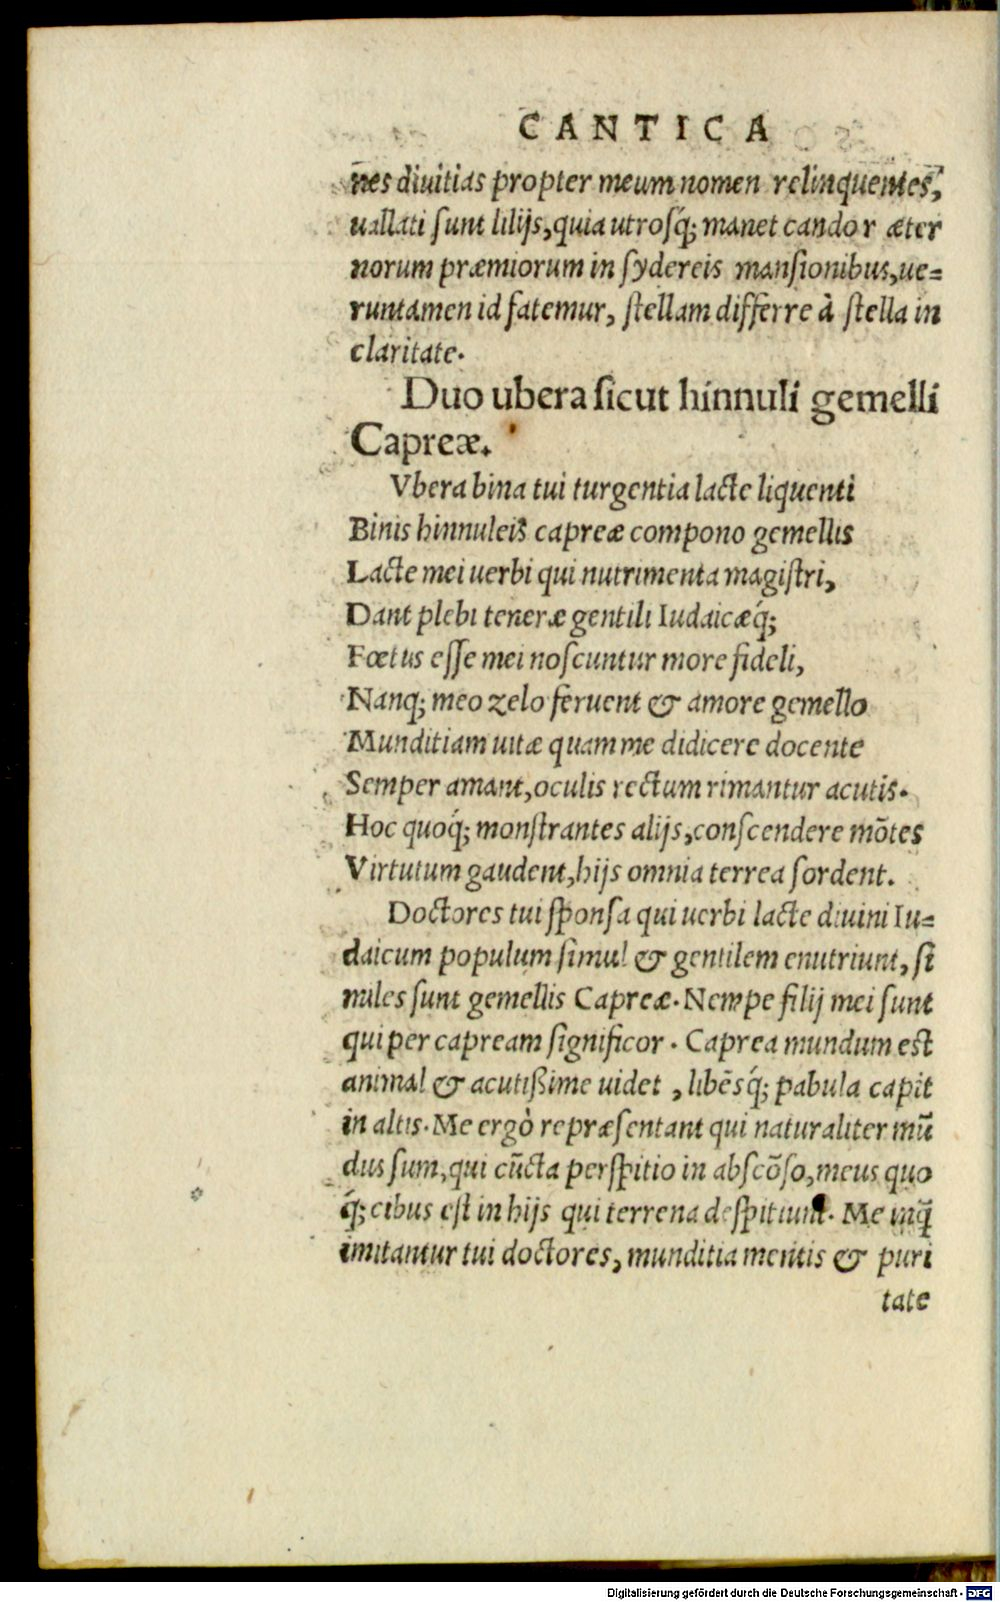 CANTICA
nes diuitias propter meum nomen relinquentes,
uallati sunt lilijs, quia utrosq́; manet candor æter
norum præmiorum in sydereis mansionibus, ue=
runtamen id fatemur, stellam differre à stella in
claritate.
Duo ubera sicut hinnuli gemelli
Capreæ.
Vbera bina tui turgentia lacte liquenti
Binis hinnuleis capreæ compono gemellis
Lacte mei uerbi qui nutrimenta magistri,
Dant plebi teneræ gentili Iudaicæq́;
Fœtus esse mei noscuntur more fideli,
Nanq; meo zelo feruent & amore gemello
Munditiam uitæ quam me didicere docente
Semper amant, oculis rectum rimantur acutis.
Hoc quoq́; monstrantes alijs, conscendere mōtes
Virtutum gaudent, hijs omnia terrea sordent.
Doctores tui sponsa qui uerbi lacte diuini Iu=
daicum populum simul & gentilem enutriunt, si
miles sunt gemellis Capreæ. Nempe filij mei sunt
qui per capream significor. Caprea mundum est
animal & acutißime uidet, libēsq́; pabula capit
in altis. Me ergò repræsentant qui naturaliter mū
dus sum, qui cūcta perspitio in abscōso, meus quo
q́; cibus est in hijs qui terrena despitiunt. Me inq̄
imitantur tui doctores, munditia mentis & puri
tate
Digitalisierung gefördert durch die Deutsche Forschungsgemeinschaft - DFG